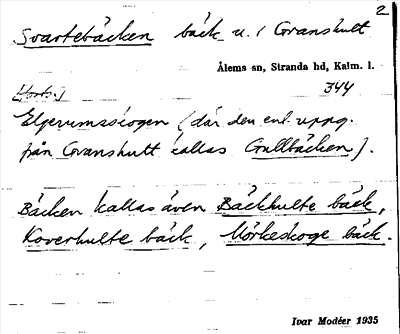 2
Svartebäcken bäck u. i Granshult
Ålems sn, Stranda hd, Kalm. l.
344
(forts.)
Elgerumsskogen (där den enl. uppg.
från Granshult kallas Gullbäcken).
Bäcken kallas även Bäckhulte bäck,
Koverhulte bäck, Mörkeskoge bäck.
Ivar Modéer 1935